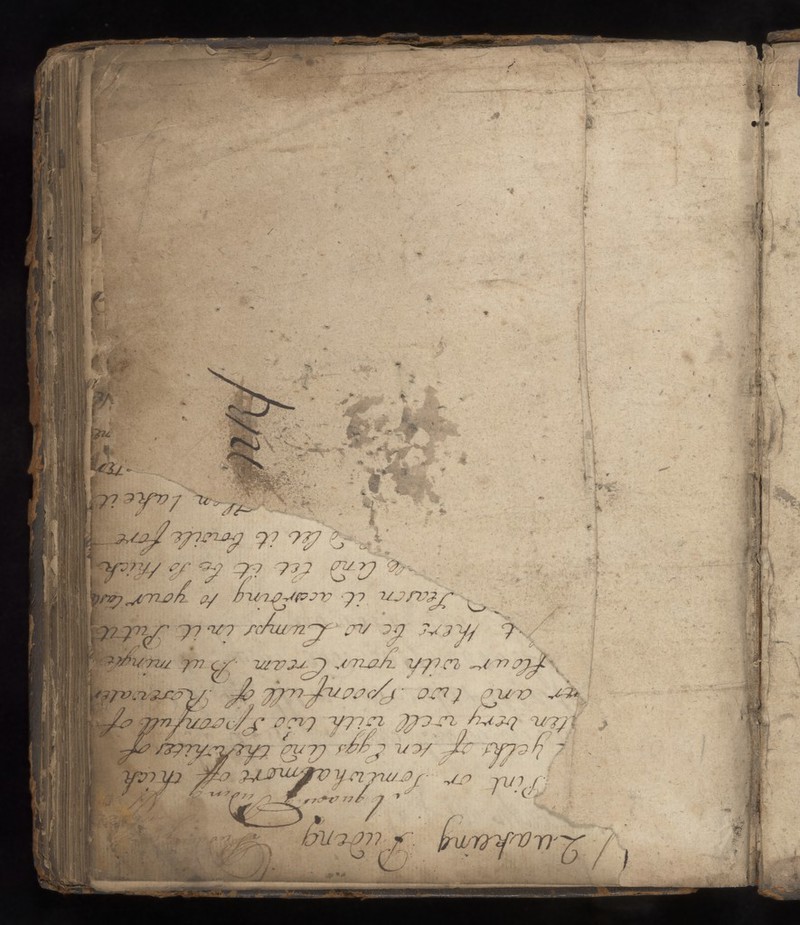 Quakeing Puding
a quaking Puding
Pint or Somwhat more off thick
yelks of ten Eggs and the whites of
ten very well with two Spoonfull of
and two Spoonfull of Rosewater
flour with your Cream But mingle
there be no Lumps in it Put it
Season it according to your tast
and Let it be so thick
let it bowile fore
then take it